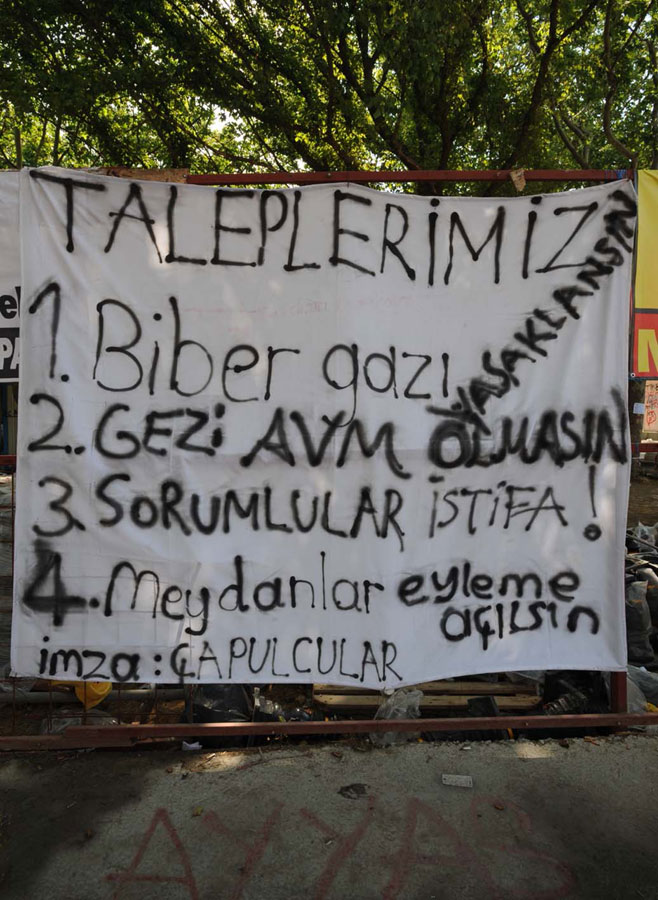 TALEPLERİMİZ
1. Biber gazı YASAKLANSIN
2. GEZİ AVM OLMASIN
3. SORUMLULAR İSTİFA!
4. Meydanlar eyleme
açılsın
imza: ÇAPULCULAR
AYYAŞ